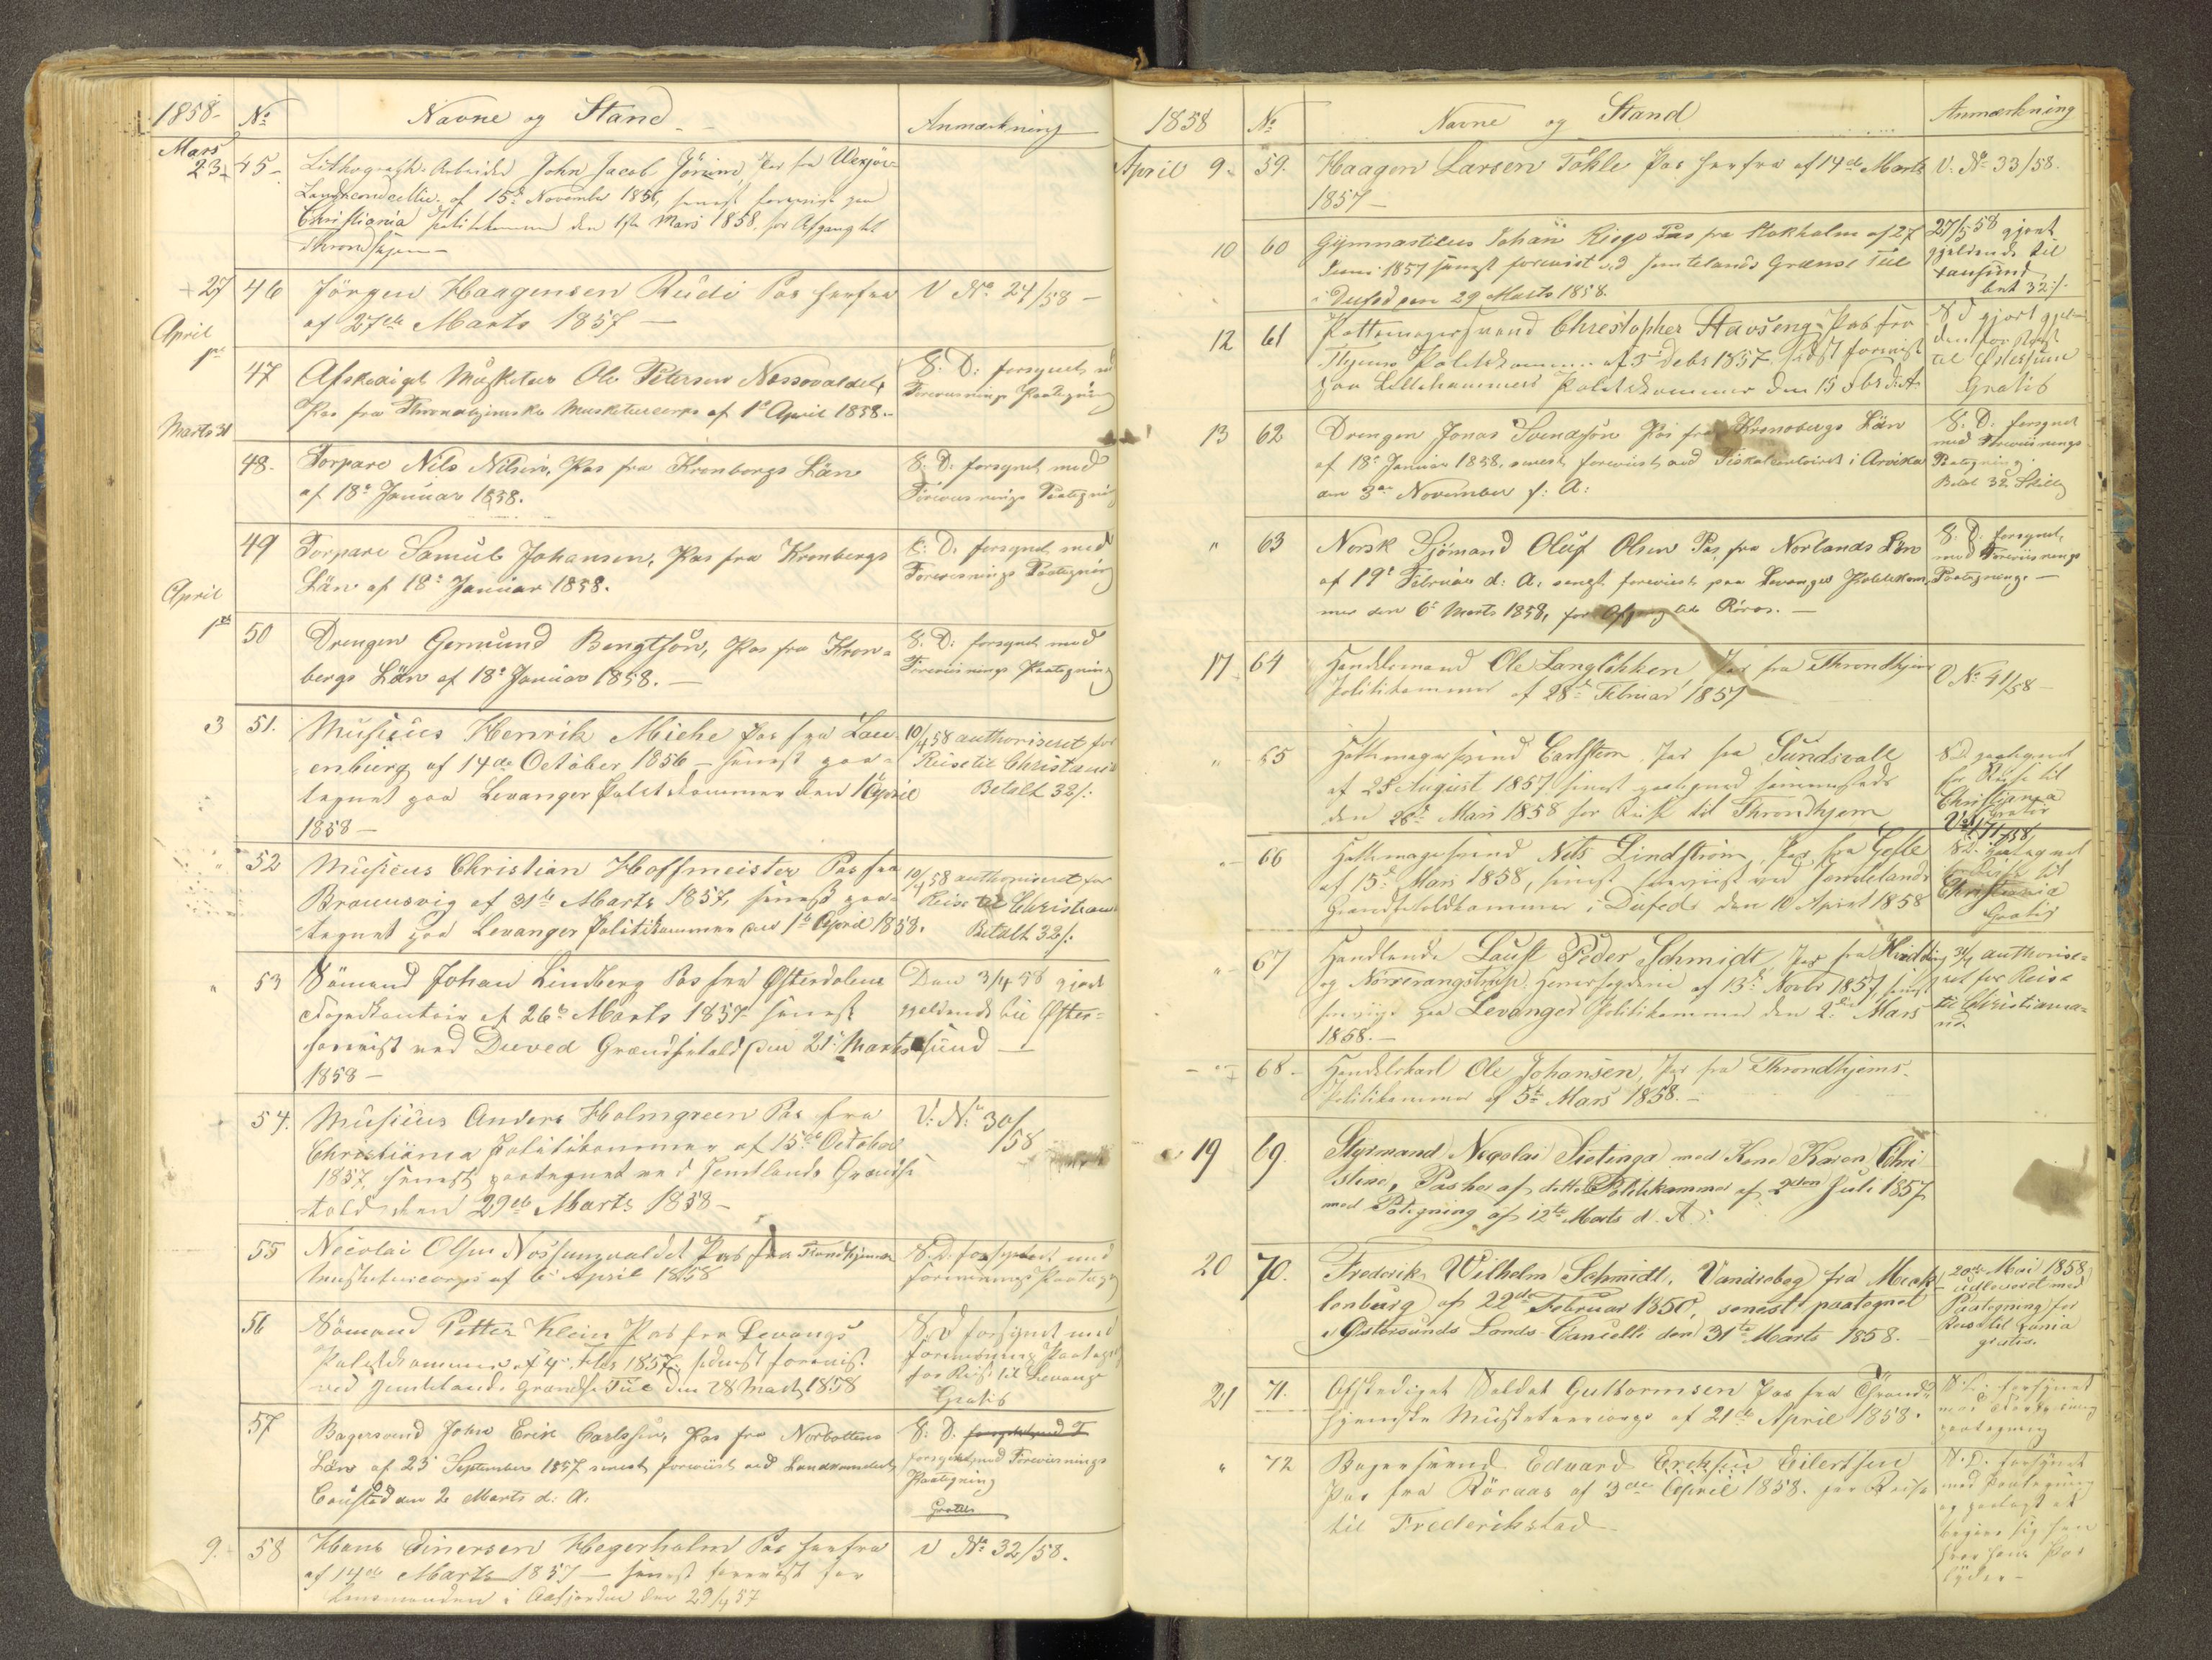 1858 No Navne og Stand Anmærkning
Mars
23 45 Lithograph-Arbeider John Jacob Pas fra Wexjös
Landscancellie af 15de November 1856, senest forevist paa
Christiania Politikammer den 1ste Mars 1858 for Afgang til
Throndhjem
27 46 Jörgen Haagensen Rudi Pas herfra V No 24/58
af 27de Marts 1857
April
1ste 47 Afskediget Musketeer Ole Petersen Nossovaldet, S. D. forsynet med
Pas fra Throndhjemske Musketeercorps af 1ste April 1858. Forevisnings Paategning
Marts 31
48. Torpare Nils Nilsen, Pas fra Kronborgs Län S. D. forsynet med
af 18de Januar 1858. Forevisnings Paategning
49 Torpare Samuel Johansen, Pas fra Kronbergs S. D. forsynet med
Län af 18de Januar 1858. Forevisnings Paategning
April
1ste 50 Drengen Germund Bengtson, Pas fra Kron- S. D. forsynet med
bergs Län af 18de Januar 1858. Forevisnings Paategning
3 51. Musicus Henrik Miehe Pas fra Lau- 10/4 58 authoriseret for
enburg af 14de October 1856 - senest paa- Reise til Christiania
tegnet paa Levanger Politikammer den 1 April Betalt 32/:
1858
" 52 Musicus Christian Hoffmeister Pas fra 10/4 58 authoriseret for
Braunsvig af 31te Marts 1857, senest paa- Reise til Christian
tegnet paa Levanger Politikammer den 1ste April 1858. Betalt 32/:
" 53 Sömand Johan Lindberg Pas fra Østerdalens Den 3/4 58 gjort
Fogedkontoir af 26de Marts 1857 senest gjeldende til Øster-
forevist ved Duved Grændsetold den 21 Marts sund
1858
54. Musicus Anders Holmgreen Pas fra V: No 30/58
Christiania Politikammer af 15de October
1857, senest paategnet ved Jemtlands Grændse
told den 29de Marts 1858
55 Nicolai Olsen Nossumvaldet Pas fra Trondhjemske S. D. forsynet med
Musketeercorps af 6 April 1858 Forevisnings Paategn
56 Sömand Petter Klein Pas fra Levangs S. D forsynet med
Politikammer af 4 1857, senest forevist Forevisnings Paategn
ved Jemtlands Grændse Told den 28 Marts 1858 for Reise til Levanger
Gratis
57 Bagersvend John Erik Carlssen, Pas fra Norbottens S. D.
Län af 25 September 1857 senest foreviist ved Landscancelliet forsynet med Foreviisnings
den 2 Marts d: A: Paategning
Gratis
9. 58 Hans Einersen Hegerholm Pas herfra V No 32/58.
af 14de Marts 1857 - senest forevist for
Lensmanden i Aafjorden den 29/4 57
1858 No Navne og Stand Anmærkning
April 9. 59. Haagen Larsen Töhle Pas herfra af 14de Marts V. No 33/58.
1857
10 60 Gymnasticus Johan Riego Pas fra Stokholm af 27 27/5 58 gjort
Juni 1857 senest forevist ved Jemtelands Grændse Told gjeldende til
i Dufed den 29 Marts 1858. bet 32/.
12 61 Pottemagersvend Christopher Stavseng Pas fra S D gjort gjel-
Politikammer af 3die Debr 1857 sidst forevist dende for Reise
paa Lillehammers Politikammer den 15 d. A. til
Gratis
13 62 Drengen Jonas Svendsön Pas fra Kronobergs Län S. D. forsynet
af 18de Januar 1858, senest foreviist ved Fiskalcontoiret i Arvika med Foreviisnings
den 3die November f: A: Paategning.
Betal 32 Skilling
" 63 Norsk Sjömand Oluf Olsen Pas fra Norlands Län S. D. forsynet
af 19de Februar d: A: senest foreviist paa Levanger Politikam- med Foreviisnings
mer den 6te Marts 1858, for Afgang til Röros. Paategning.
17 64 Handelsmand Ole Langlökken, Pas fra Throndhjems V No 41/58
Politikammer af 28de Februar 1857
" 65 Hattemagersvend Carlstrom, Pas fra Sundsvall S D. paategnet
af 28 August 1857 senest paategnet sammesteds for Reise til
den 26de Mars 1858 for Reise til Throndhjem Christiania
Gratis
" 66 Hattemagersvend Nils Lindström, Pas fra Gefle S. D. paategnet
af 15de Mars 1858, senest foreviist ved Jemtelands for Reise til
Grændsetoldkammer i Dufed den 10 April 1858 Christiania
Gratis
" 67 Handlende Laust Peder Schmidt, Pas fra Hindding authorise-
og Nörrerangstrup Herredsfogderie af 13de Novbr 1857, senest ret for Reise
foreviist paa Levanger Politikammer den 2den Mars til Christiania
1858.
" 68. Handelskarl Ole Johansen, Pas fra Throndhjems
Politikammer af 5te Mars 1858.
19 69. Styrmand Nicolai Sietinga med Kone Karen Chri
stine, Pas her af dette Politikammer af 2den Juli 1857
med Pategning af 12te Marts d. A:
20 70. Frederik Wilhelm Schmidt, Vandrebog fra Meck- 20de Mai 1858
lenburg af 22de Februar 1850, senest paategnet udleveret med
i Østersunds Lands-Cancelli den 31te Marts 1858. Paategning for
Reise til Xania
gratis.
21 71. Afskediget Soldat Guttormsen Pas fra Thrond- S. D. forsynet
hjemske Musketeercorps af 21de April 1858. med
paategning
" 72 Bagersvend Eduard Ereksen Eilertsen S. D. forsynet
Pas fra Röraas af 3die April 1858. for Reise med Paategning
til Frederikstad og paalagt at
begive sig hen
hvor hans Pas
lyder